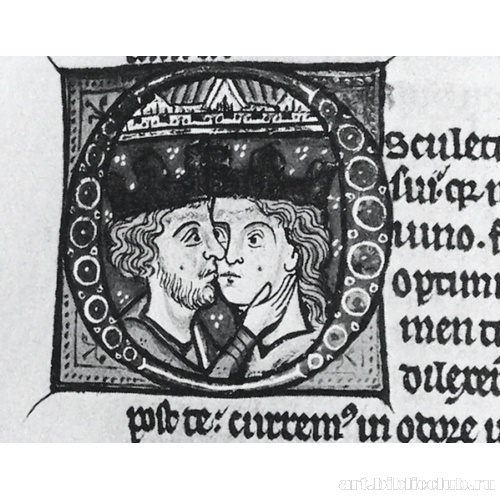 sculetᷓ
sui: qr
uino. f
optimi
men tu
dilexer
post te: curremꝰ in odore u
art.biblioclub.ru